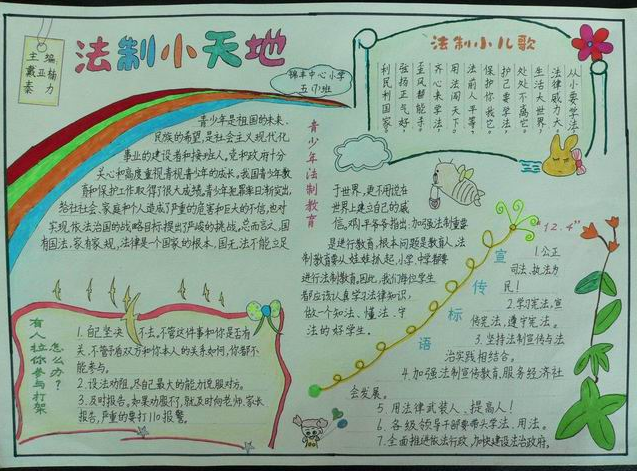 法制小天地
主编
戴亚楠
秦 力
锦丰中心小学
五(1)班
法制小儿歌
从小要学法，
法律威力大。
生活大世界，
处处不离它。
护己要学法，
保护你我它。
法前人平等，
用法闯天下。
齐心来学法，
歪风都能革。
强扬正气好，
利民利国家。
青少年法制教育
青少年是祖国的未来、
民族的希望，是社会主义现代化
事业的建设者和接班人，党和政府十分
关心和高度重视青视青少年的成长，我国青少年教
育和保护工作取得了很大成绩，青少年犯罪率日渐突出，
给社社会、家庭和个人造成了严重的危害和巨大的不信，也对
实现依法治国的战略目标提出了严峻的挑战。总而言之，国
有国法，家有家规，法律是一个国家的根本，国无法不能立足
于世界，更不用说在
世界上建立自己的威
信，邓小平爷爷指出：加强法制重要
是进行教育，根本问题是教育人，法
制教育要从娃娃抓起，小学、中学都要
进行法制教育。因此，我们每位学生
都应该认真学习法律知识，
做一个知法、懂法、守
法的好学生。
有人拉你参与打架
怎么办？
1.自己坚决不去，不管这件事和你是否有
关，不管于肯双方和你本人的关系如何，你都不
能参与。
2.设法劝阻，尽自己最大的能力说服对方。
3.及时报告。如果劝服不了，就及时向老师、家长
报告，严重的要打110报警。
“12.4”
宣传标语
1.公正
司法、执法为
民！
2.学习宪法，宣
传宪法，遵守宪法。
3.坚持法制宣传与法
治实践相结合。
4.加强法制宣传教育，服务经济社
会发展。
5.用法律武装人、提高人！
6.各级领导干部要带头学法、用法。
7.全面推进依法行政，加快建设法治政府。